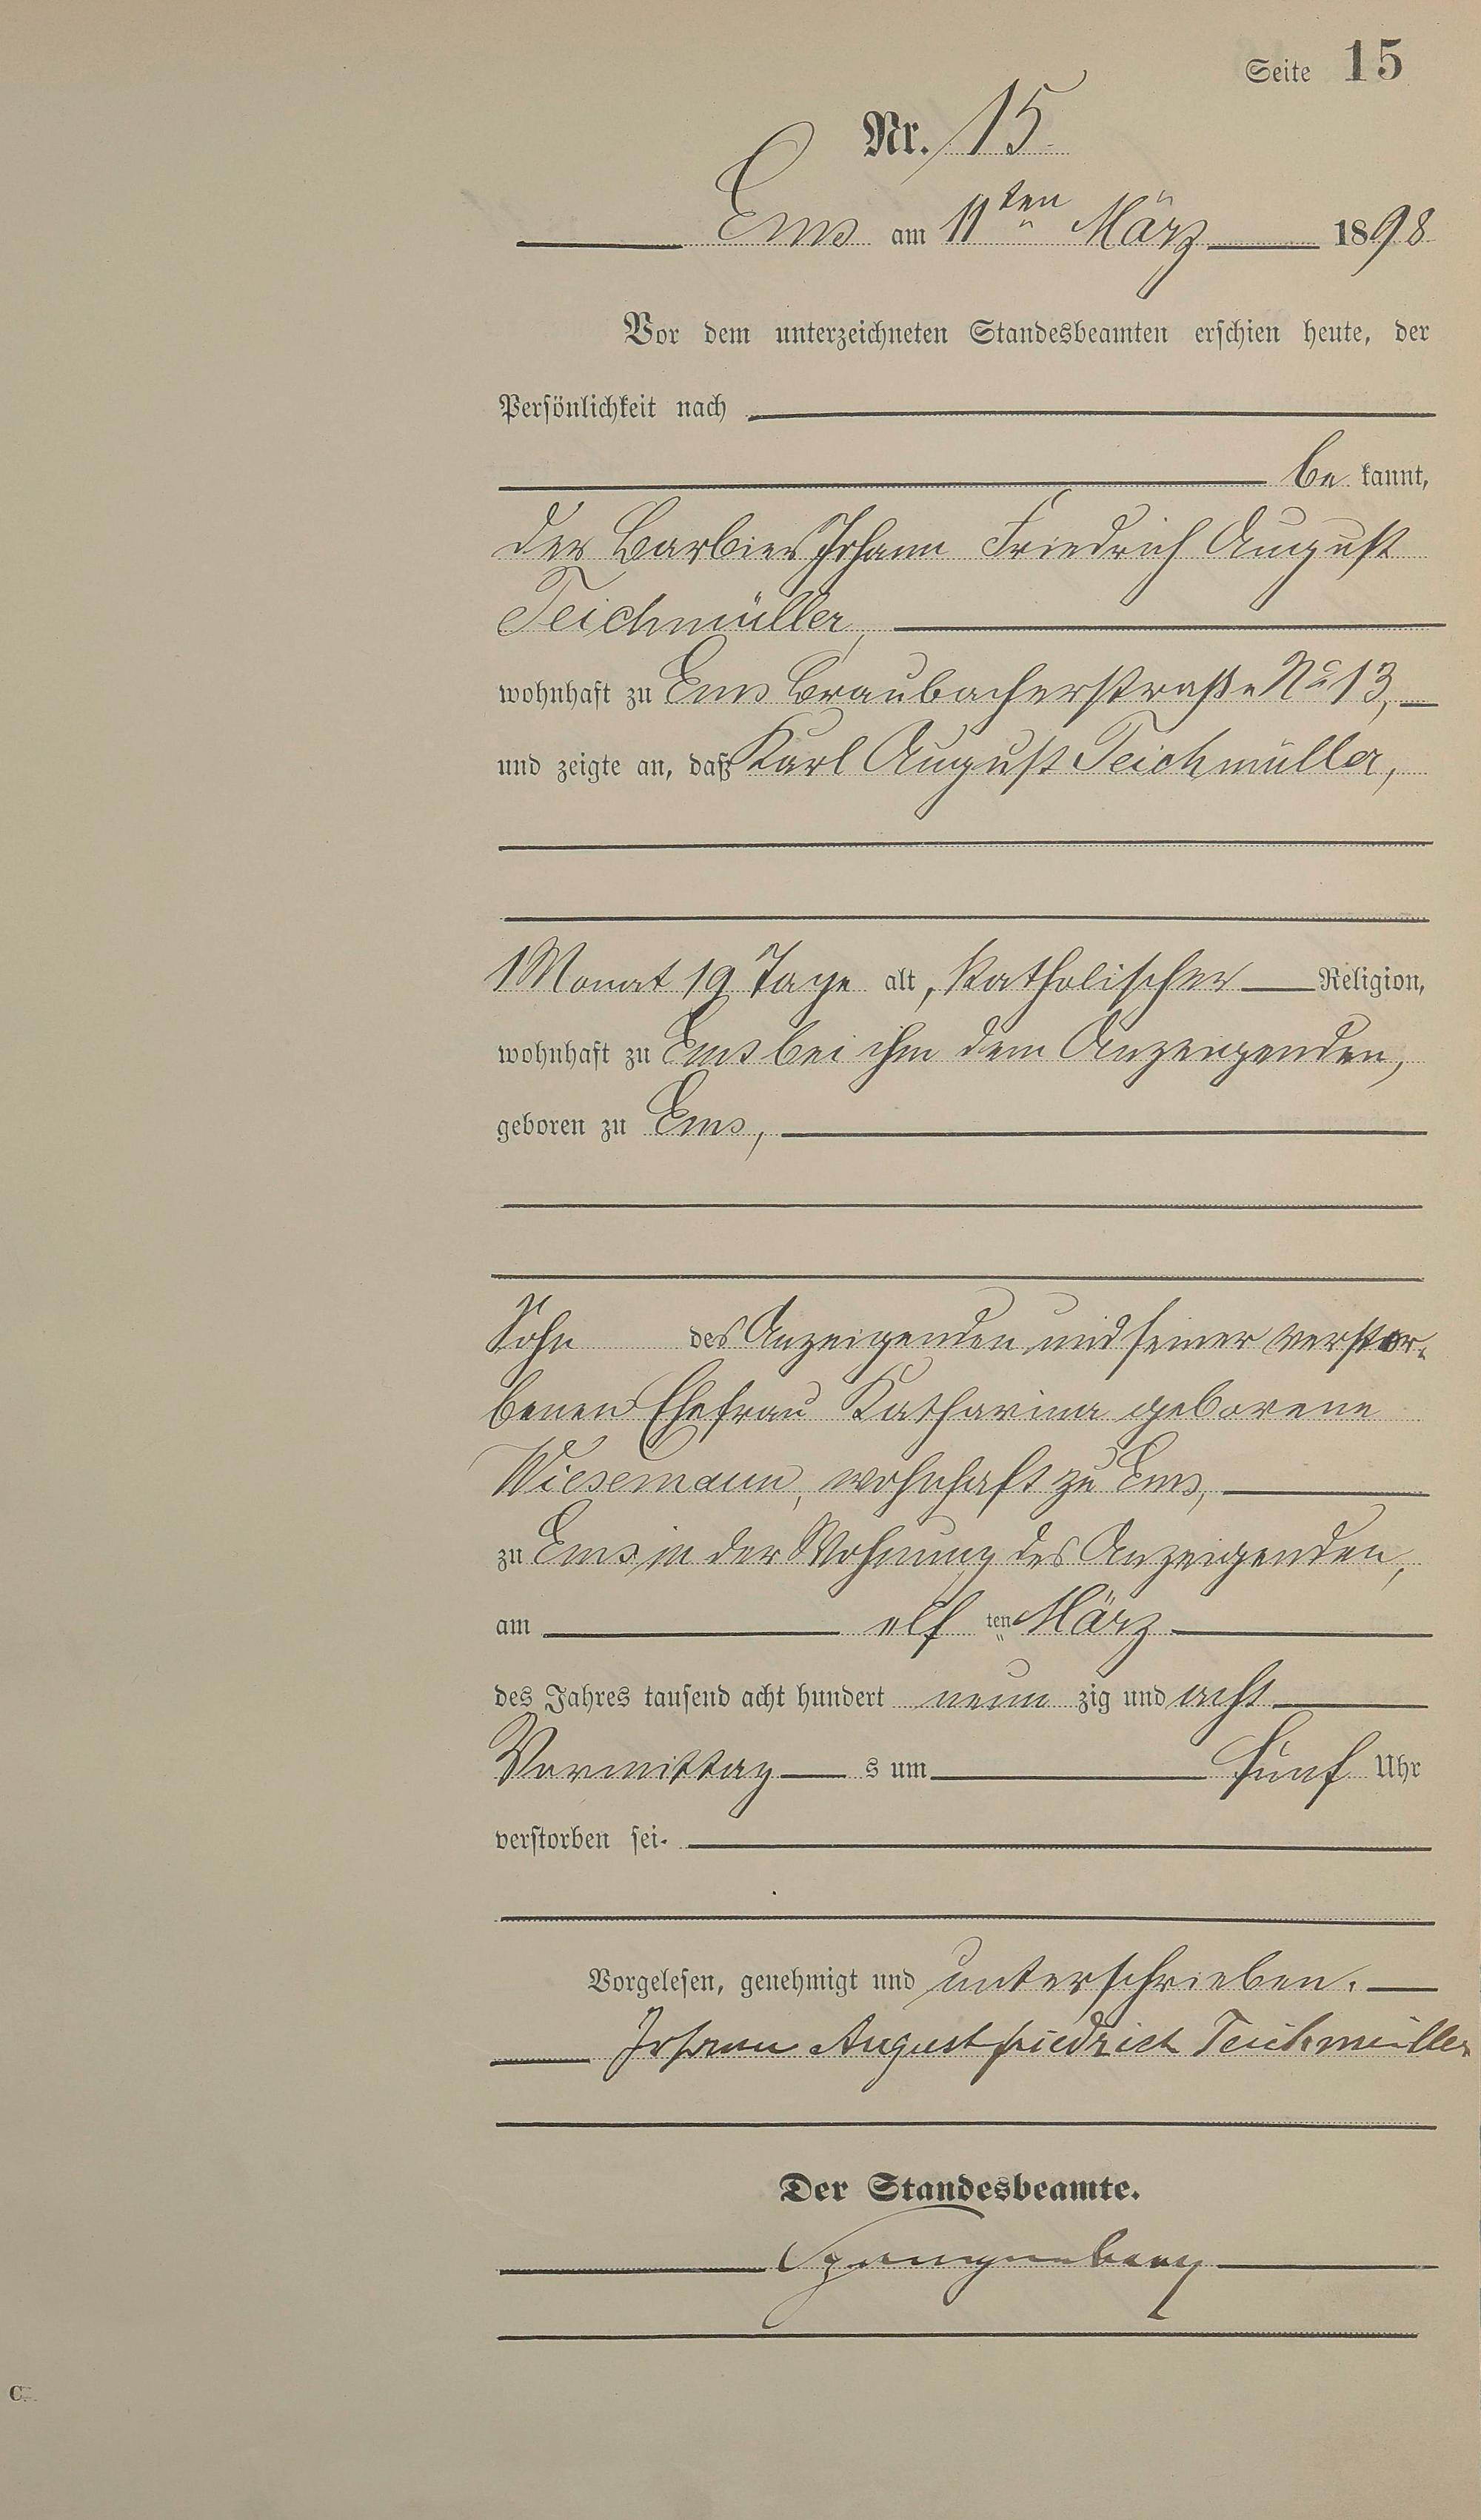 Seite 15
Nr. 15.
Ems am 11ten März 1898
Vor dem unterzeichneten Standesbeamten erschien heute, der
Persönlichkeit nach
be kannt,
der Barbier Johann Friedrich August
Teichmüller,
wohnhaft zu Ems Braubacherstraße No 13,
und zeigte an, daß Karl August Teichmüller,
1 Monat 19 Tage alt, katholischer Religion,
wohnhaft zu Ems bei ihm dem Anzeigenden,
geboren zu Ems,
Sohn des Anzeigenden und seiner verstor-
benen Ehefrau Katharina geborene
Wiesemann, wohnhaft zu Ems,
zu Ems in der Wohnung des Anzeigenden,
am elf ten März
des Jahres tausend acht hundert neun zig und acht
Vormittag s um fünf Uhr
verstorben sei.
Vorgelesen, genehmigt und unterschrieben.
Johann August Friedrich Teichmüller
Der Standesbeamte.
Spangenberg
C.